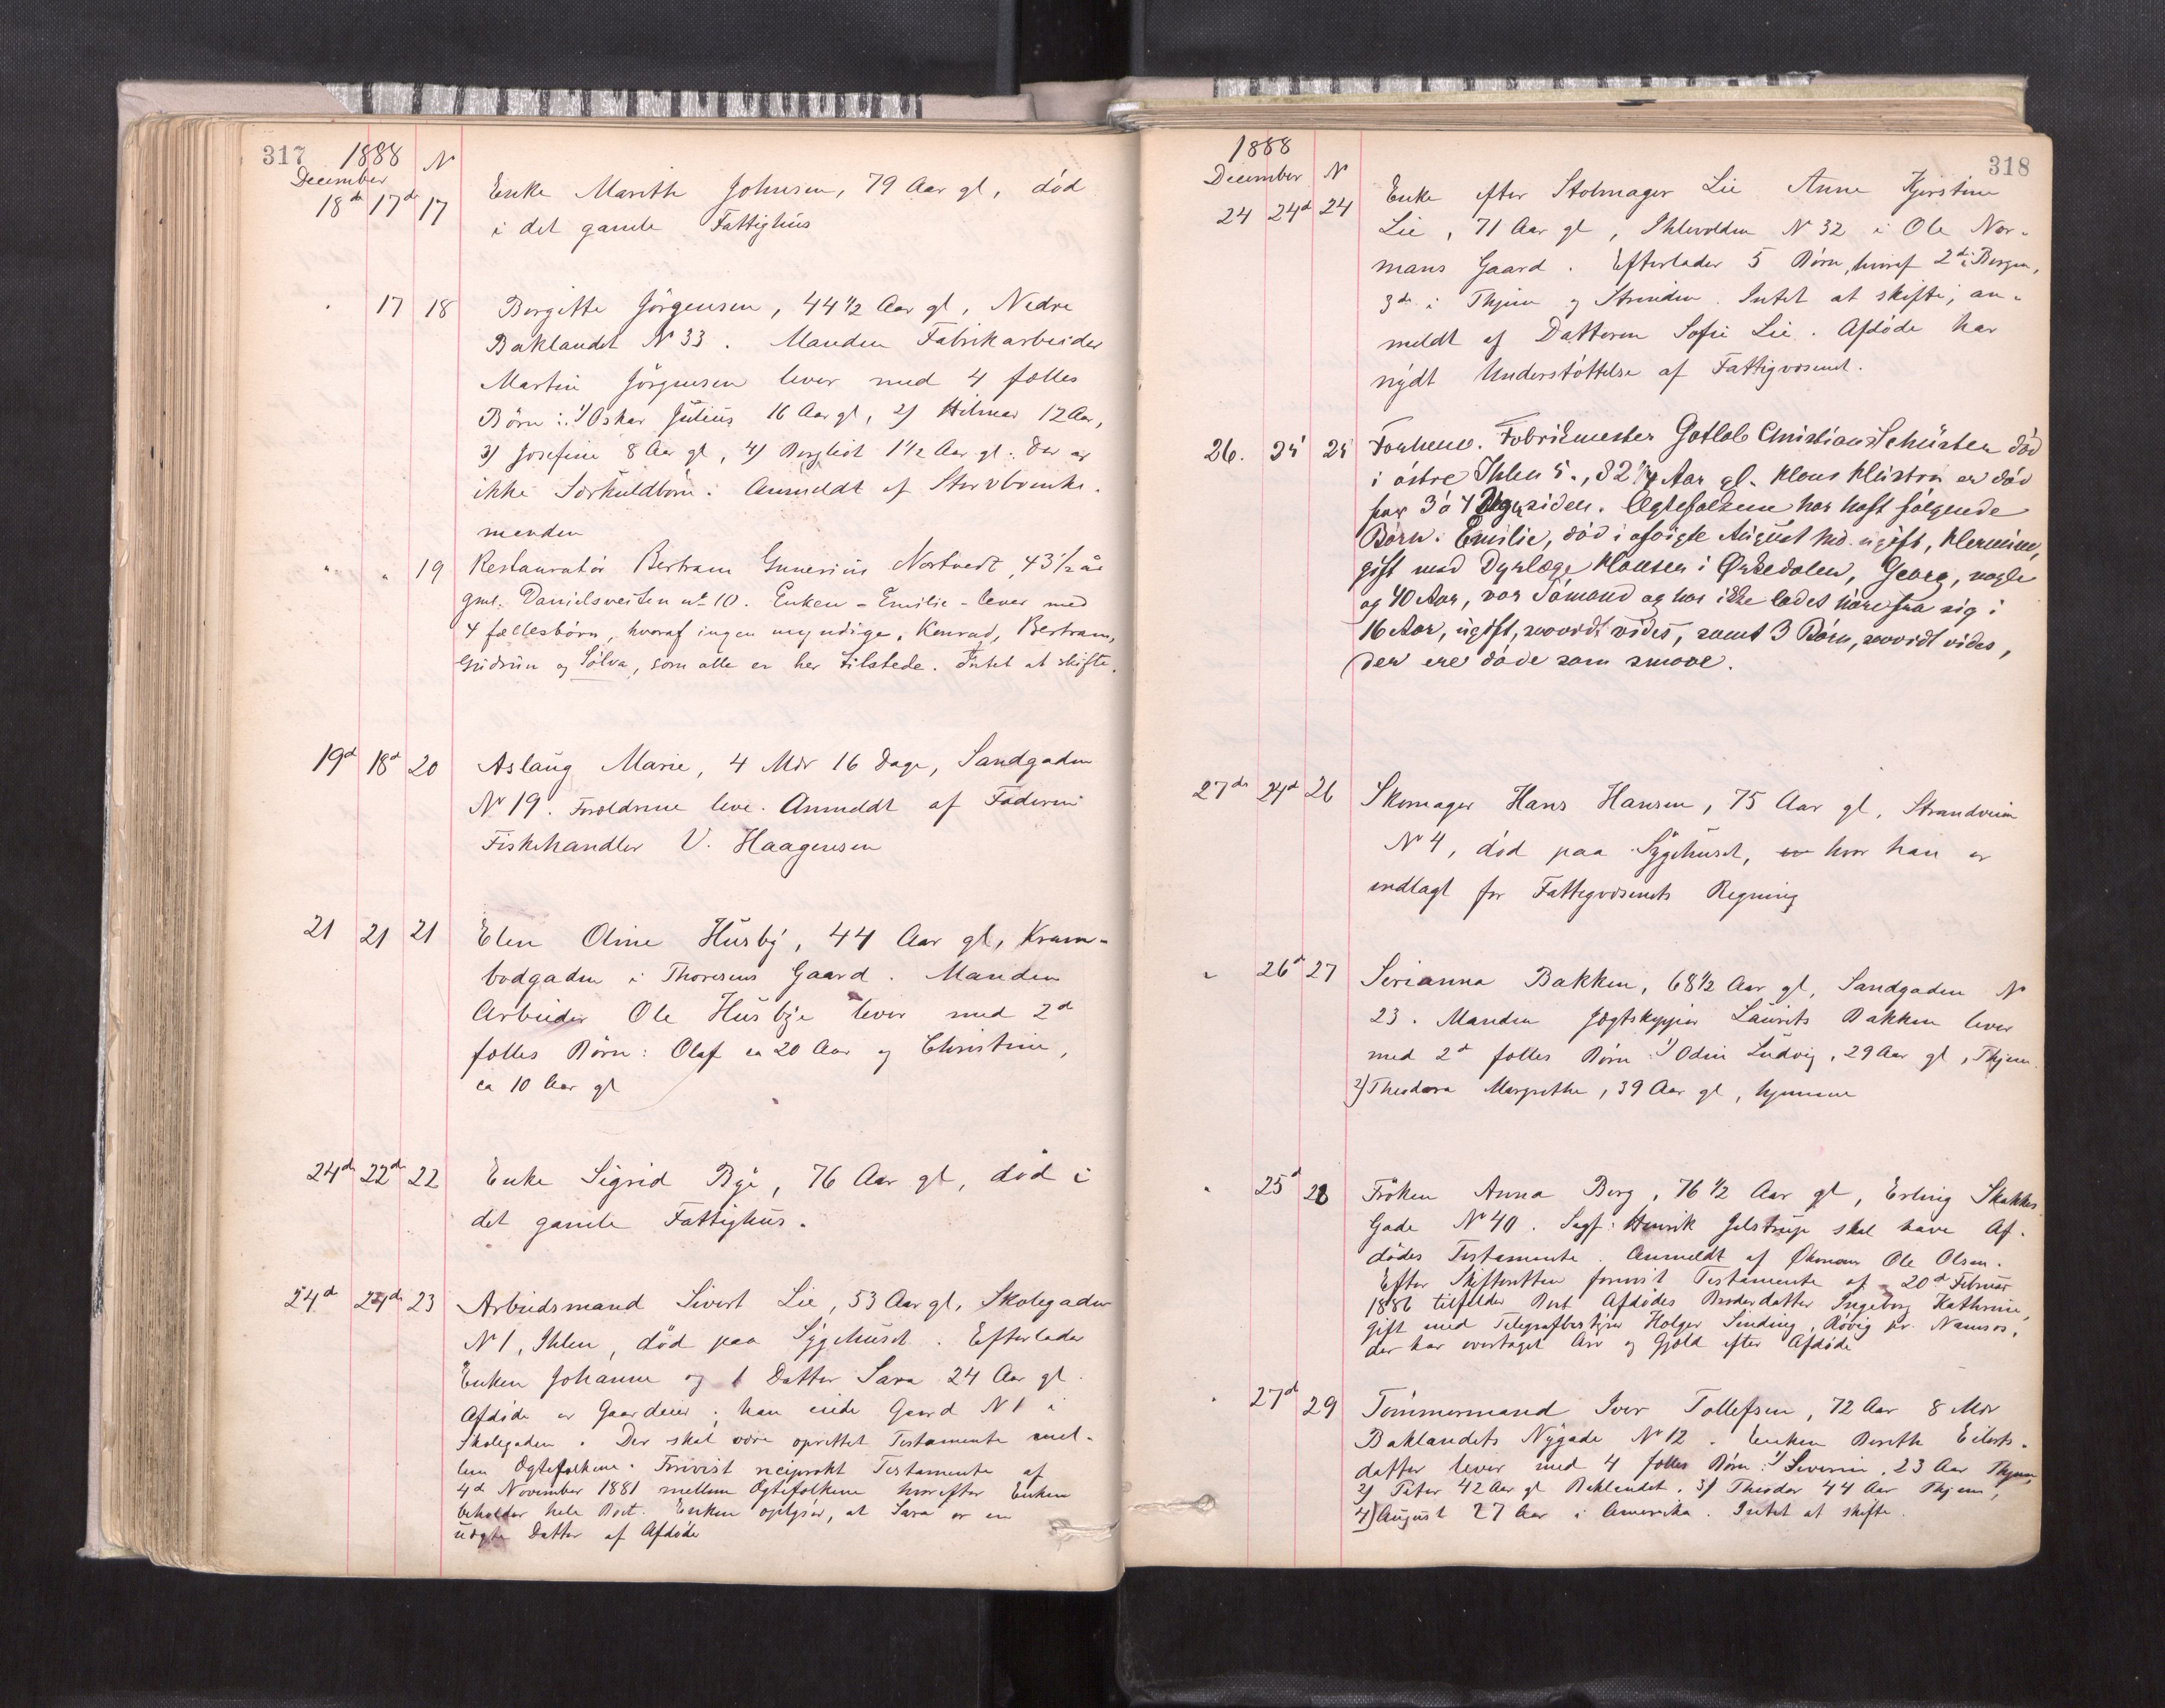 317 1888 N
December
18de 17de 17 Enke Marith Johnsen, 79 Aar gl, död
i det gamle Fattighus
17 18 Borgitte Jörgensen, 44 1/2 Aar gl, Nedre
Baklandet N 33. Manden Fabrikarbeider
Martin Jörgensen lever med 4 fælles
Börn: 1) Oskar Julius 16 Aar gl, 2) Hilmar 12 Aar,
3) Josefine 8 Aar gl, 4) Bergliot 1 1/2 Aar gl: Der er
ikke Særkuldbörn. Anmeldt af
manden
" " 19 Restauratör Bertram Gunerius Nortvedt, 43 1/2 år
gml. Danielsveiten no 10. Enken - Emilie - lever med
4 fællesbörn, hvoraf ingen myndige, Konrad, Bertram,
Gudrun og Sölva, som alle er her tilstede. Intet at skifte.
19d 18d 20 Aslaug Marie, 4 Mdr 16 Dage, Sandgaden
No 19. Forældrene leve. Anmeldt af Faderen
Fiskehandler V. Haagensen
21 21 21 Elen Oline Husby, 44 Aar gl, Kram-
bodgaden i Thoresens Gaard. Manden
Arbeider Ole Husbye lever med 2d
fælles Börn: Olaf ca 20 Aar og Christine,
ca 10 Aar gl
24de 22de 22 Enke Sigrid Bye, 76 Aar gl, död i
det gamle Fattighus.
24d 24de 23 Arbeidsmand Sivert Lie, 53 Aar gl, Skolegaden
N 1, Ihlen, död paa Sygehuset. Efterlader
Enken Johanne og 1 Datter Sara 24 Aar gl.
Afdöde er Gaardeier; han eiede Gaard N 1 i
Skolegaden. Der skal være oprettet Testamente mel-
lem Ægtefolkene. Forevist reciprokt Testamente af
4d November 1881 mellem Ægtefolkene hvorefter Enken
beholder hele Boet. Enken opligser, at Sara er en
uægte Datter af Afdöde
1888 318
December N
24 24d 24 Enke efter Stolmager Lie Anne Kjerstine
Lie, 71 Aar gl, Ihlevolden N 32 i Ole Nor-
mans Gaard. Efterlader 5 Börn, hvoraf 2de i Bergen,
3de i Thjem og Strinden. Intet at skifte; an-
meldt af Datteren Sofie Lie. Afdöde har
nydt Understöttelse af Fattigvæsenet.
26. 25 25 Forhenv. Fabrikmester Gotlob Christian Schüster död
i östre Ihlen 5., 82 1/4 Aar gl. Hans Hustru er död
for 3 à 4 Uger siden. Ægtefolkene har haft fölgende
Börn: Emilie, död i afvigte August Md. ugift, Hermine,
gift med Dyrlæge Hansen i Ørkedalen, Georg, nogle
og 40 Aar, var Sömand og har ikke ladet höre fra sig i
16 Aar, ugift, saavidt vides, samt 3 Börn, saavidt vides,
der ere döde som smaae.
27de 24d 26 Skomager Hans Hansen, 75 Aar gl, Strandveien
No 4, död paa Sygehuset, hvor han er
indlagt for Fattigvæsenets Regning
" 26d 27 Serianna Bakken, 68 1/2 Aar gl, Sandgaden N
23. Manden Jægtskipper Laurits Bakken lever
med 2d fælles Börn: 1) Odin Ludvig, 29 Aar gl, Thjem.
2) Theodora Margrethe, 39 Aar gl, hjemme
" 25d 28 Fröken Anna Berg, 76 1/2 Aar gl, Erling Skakkes
Gade No 40. Sagf: Henrik Jelstrup skal have Af-
dödes Testamente. Anmeldt af Økonom Ole Olsen.
Efter Skifteretten forevist Testamente af 20d Februar
1886 tilfalder Boet Afdödes Broderdatter Ingeborg Kathrine,
gift med Telegrafbestyrer Holger Sinding, Rövig pr. Namsos,
der har overtaget Arv og Gjæld efter Afdöde
" 27d 29 Tömmermand Iver Tollefsen, 72 Aar 8 Mdr
Baklandets Nygade No 12. Enken Bereth Eilerts-
datter lever med 4 fælles Börn: 1) Severin, 23 Aar Thjem,
2) Peter 42 Aar gl Baklandet. 3) Theodor 44 Aar Thjem,
4) August 27 Aar i Amerika. Intet at skifte.